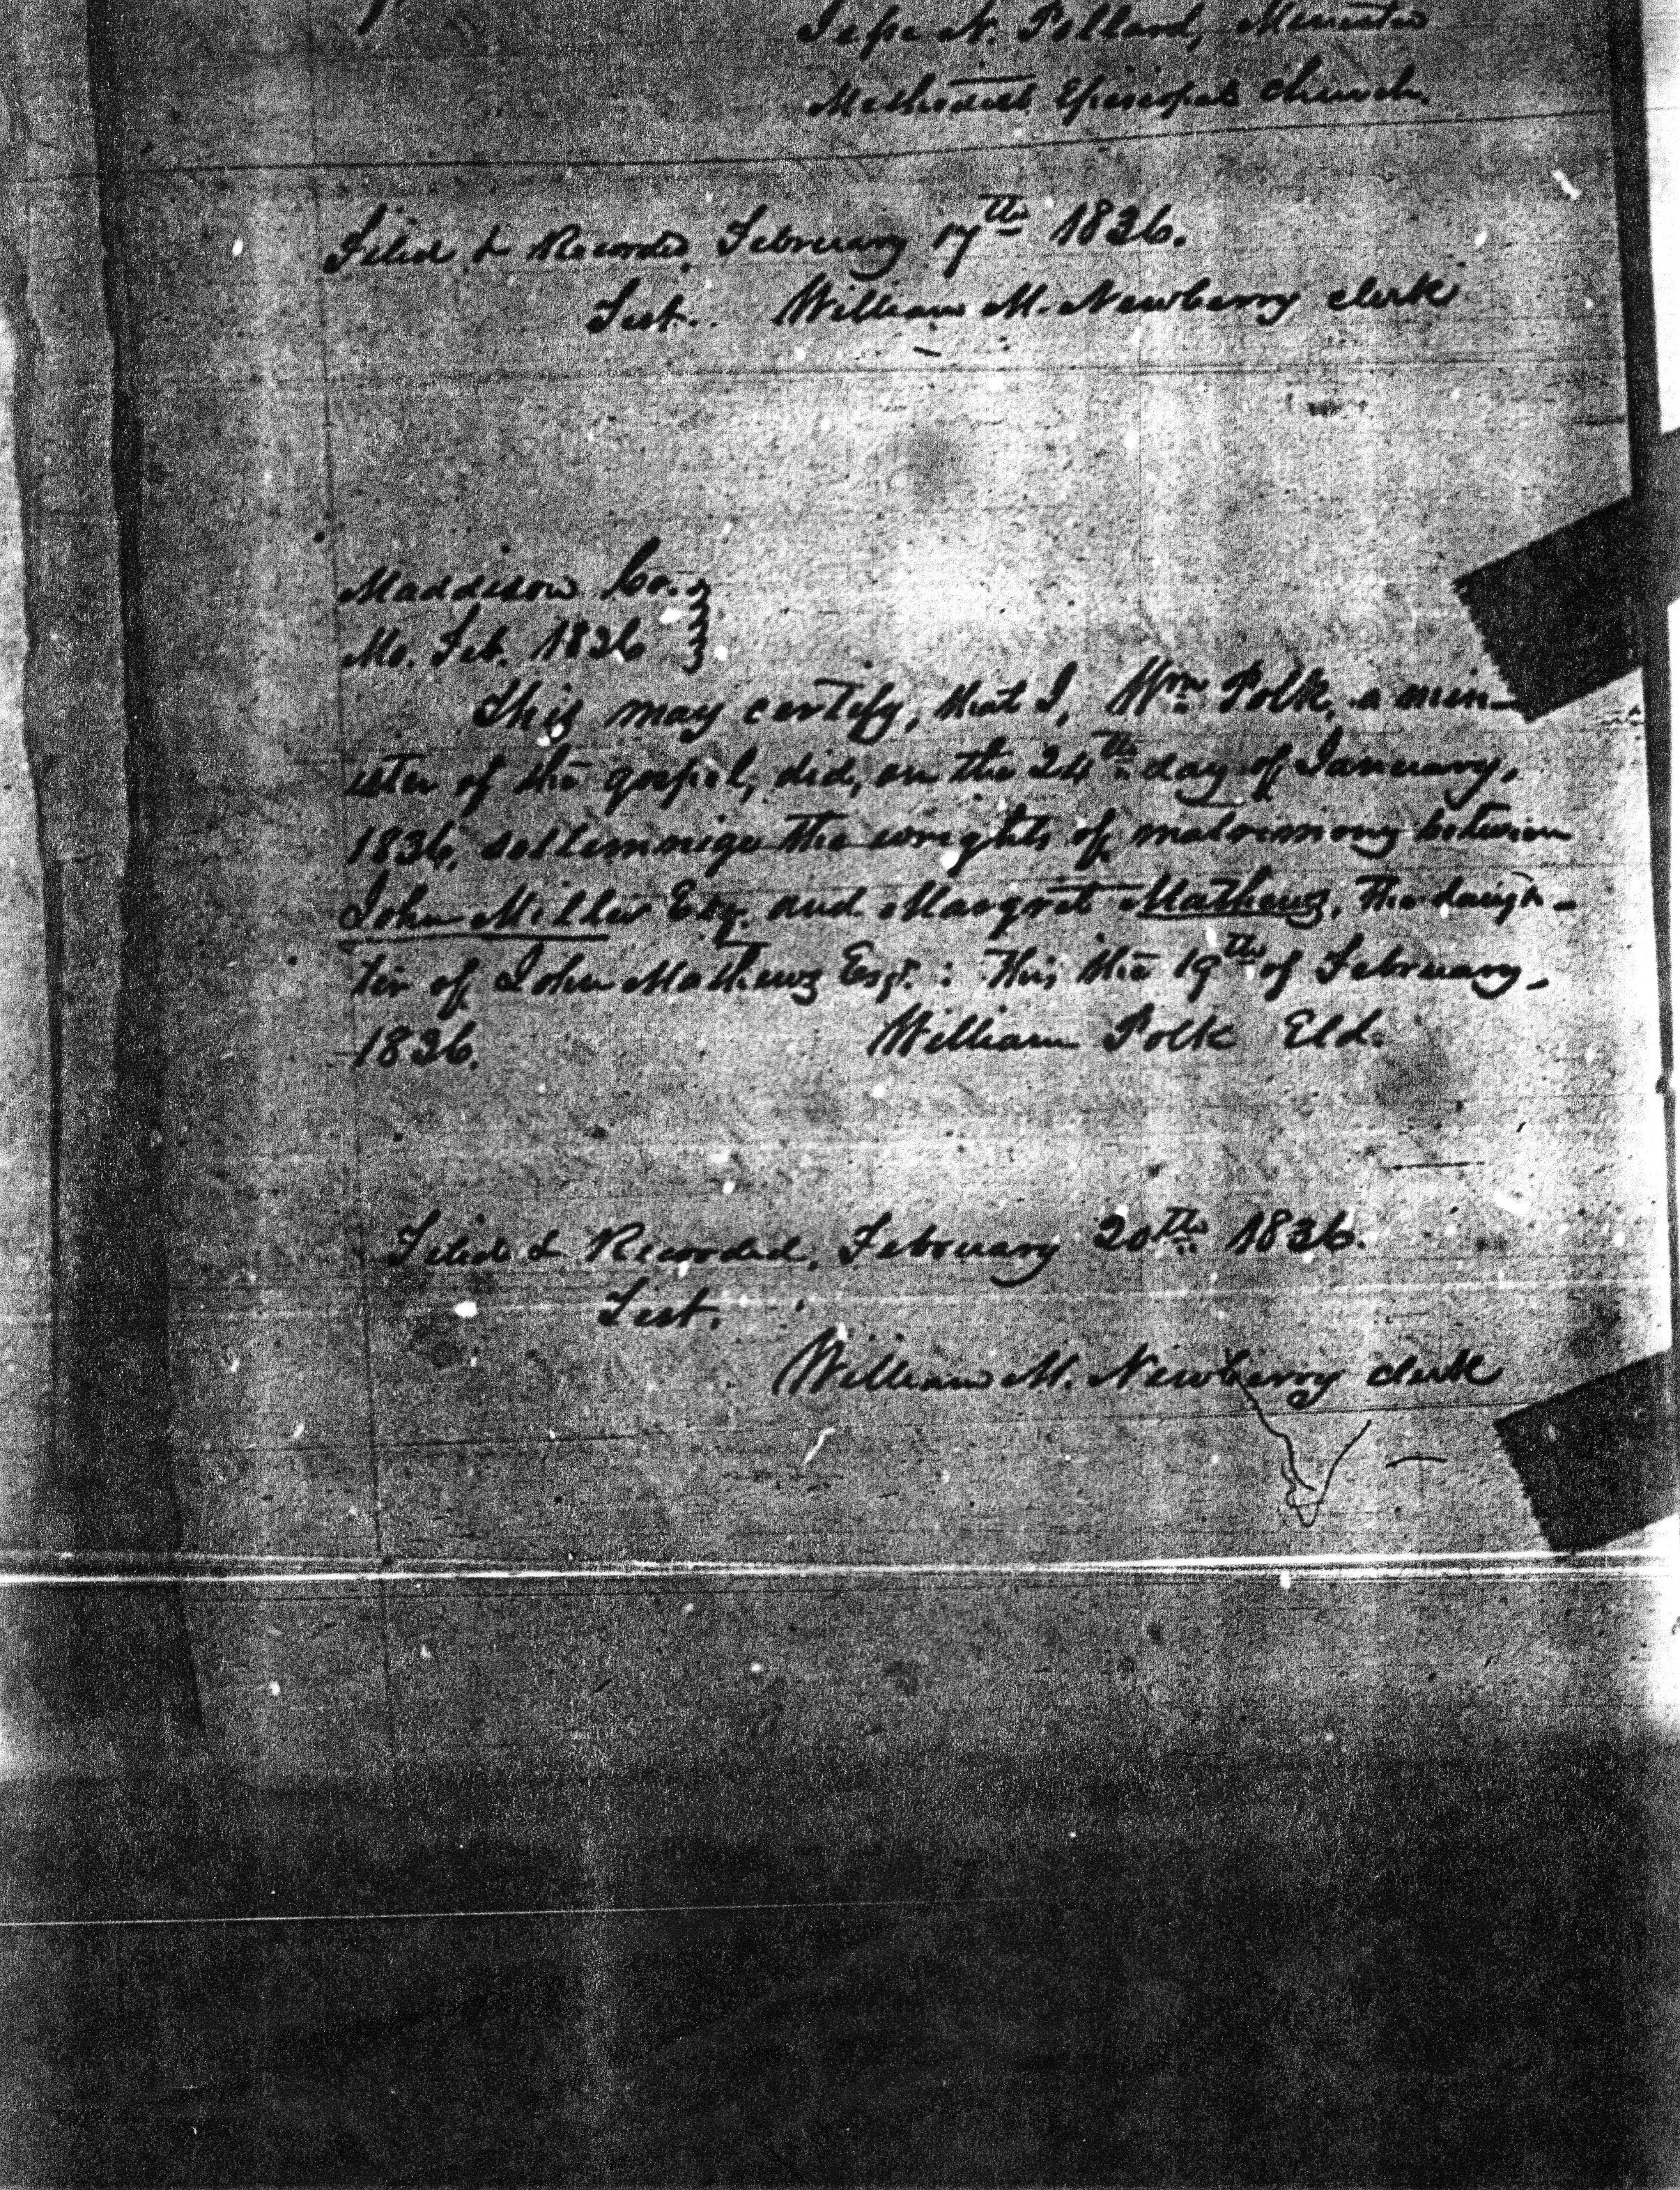 Jesse N. Pollard, Minister
Methodist Episcopal church.
Filed & Recorded, February 17th 1836.
Test. William M. Newberry clerk
Maddison Co.
Mo. Feb. 1836
This may certify, that I, Wm Polk, a min-
ister of the gospel, did, on the 24th day of January,
1836, sollemnige the wrights of matrimony between
John Miller Esq. and Margret Mathews, the daugh-
ter of John Mathews Esqr. : This the 19th of February,
1836. William Polk Eld.
Filed & Recorded, February 20th 1836.
Test.
William M. Newberry clerk